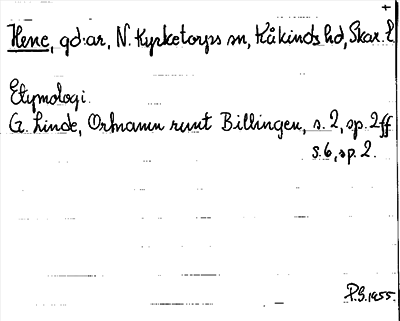 +
Hene, gd:ar, N. Kyrketorps sn, Kåkinds hd, Skar. l
Etymologi.
G. Linde, Ortnamn runt Billingen, s. 2, sp. 2 ff
s. 6, sp. 2.
P.S. 1955.